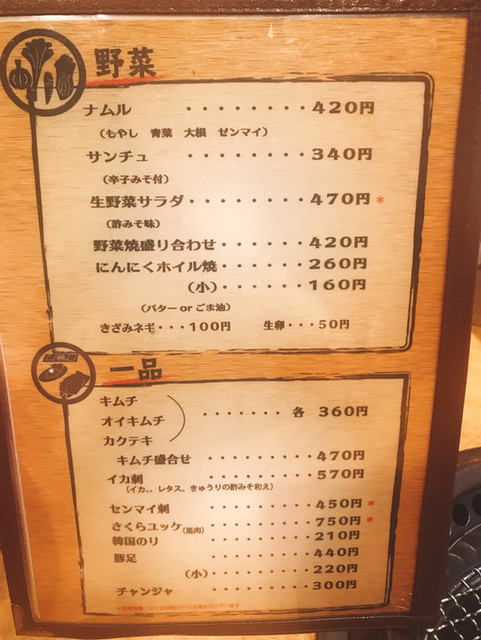 野菜
ナムル ········420円
(もやし 青菜 大根 ゼンマイ)
サンチュ ········340円
(辛子みそ付)
生野菜サラダ········470円*
(酢みそ味)
野菜焼盛り合わせ······420円
にんにくホイル焼······260円
(小)······160円
(バター or ごま油)
きざみネギ···100円 生卵···50円
一品
キムチ
オイキムチ ·······各 360円
カクテキ
キムチ盛合せ ·······470円
イカ刺 ·······570円
(イカ、、レタス、きゅうりの酢みそ和え)
センマイ刺 ·······450円*
さくらユッケ(馬肉) ·······750円*
韓国のり ·······210円
豚足 ·······440円
(小)·······220円
チャンジャ ·······300円